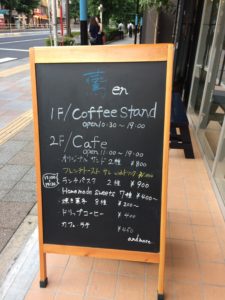 en
1F/Coffee Stand
open 10:30~19:00
2F/Cafe
open 11:00~19:00
オリジナル サンド 2種 ¥800
フレンチトースト
ランチパスタ 2種 ¥900
Homemade sweets 7種 ¥400~
焼き菓子 8種 ¥200~
ドリップコーヒー ¥400
カフェラテ ¥450
and more